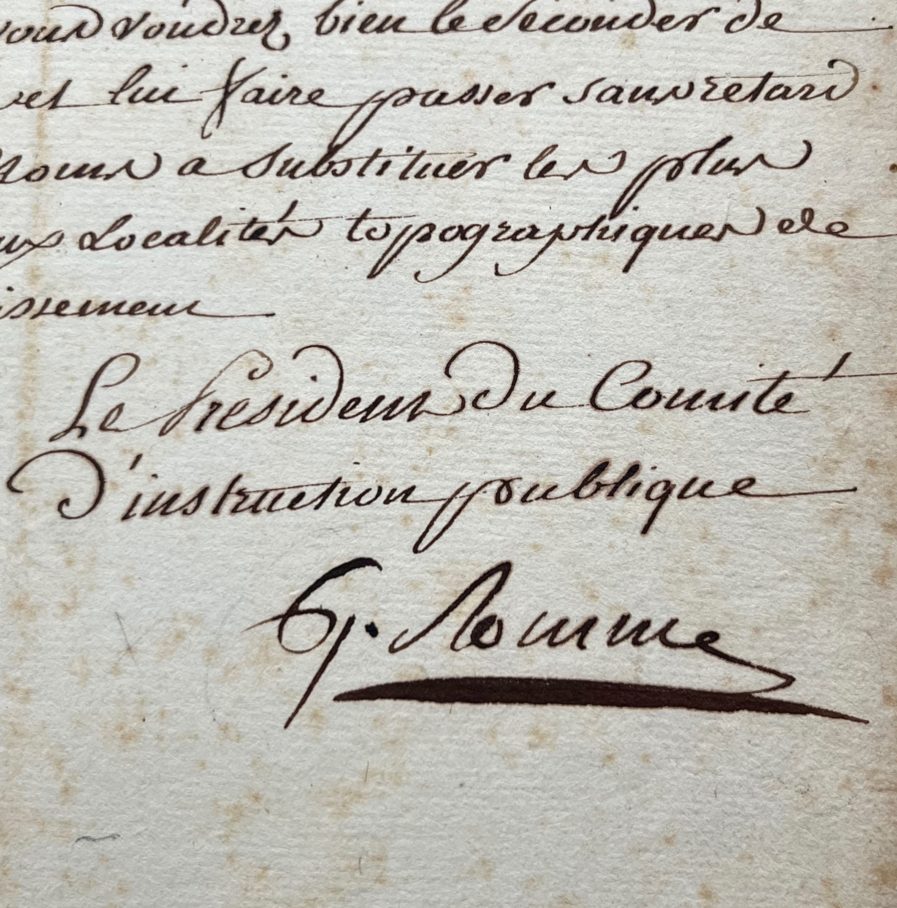 vous voudrez bien le Seconder de
et lui faire passer sans retard
Noms a Substituer les plus
aux Localités topographiques de
issement
Le Président du Comité
D'instruction publique
G. Romme